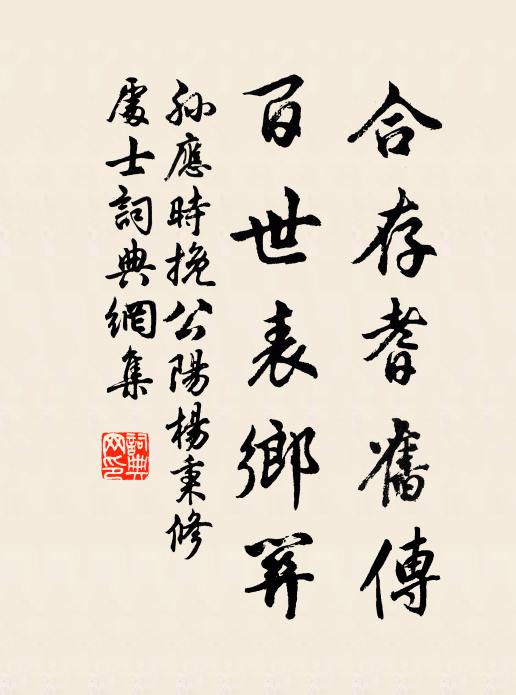 合存耆舊傳
百世表鄉關
孫應時挽公陽楊秉修
處士詞典網集
詞典网印